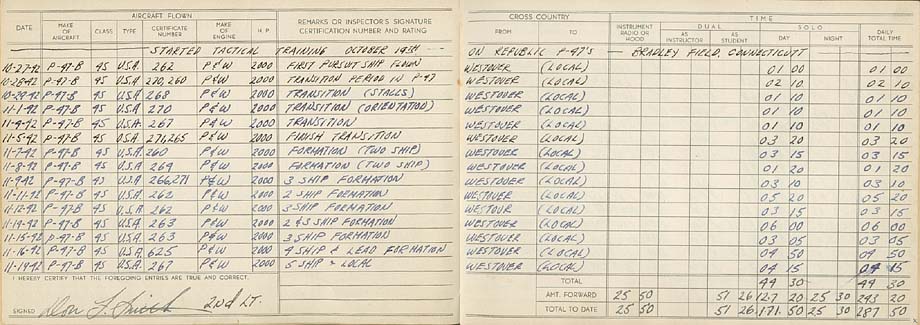 AIRCRAFT FLOWN
DATE MAKE OF AIRCRAFT CLASS TYPE CERTIFICATE NUMBER MAKE OF ENGINE H.P. REMARKS OR INSPECTOR'S SIGNATURE CERTIFICATION NUMBER AND RATING
STARTED TACTICAL TRAINING OCTOBER 19TH
10-27-42 P-47-B 45 U.S.A. 262 P&W 2000 FIRST PURSUIT SHIP FLOWN
10-28-42 P-47-B 45 U.S.A. 270,260 P&W 2000 TRANSITION PERIOD IN P-47
10-29-42 P-47-B 45 U.S.A. 268 P&W 2000 TRANSITION (STALLS)
11-1-42 P-47-B 45 U.S.A. 270 P&W 2000 TRANSITION (ORIENTATION)
11-4-42 P-47-B 45 U.S.A. 267 P&W 2000 TRANSITION
11-5-42 P-47-B 45 U.S.A. 271,265 P&W 2000 FINISH TRANSITION
11-7-42 P-47-B 45 U.S.A. 260 P&W 2000 FORMATION (TWO SHIP)
11-8-42 P-47-B 45 U.S.A. 264 P&W 2000 FORMATION (TWO SHIP)
11-9-42 P-47-B 45 U.S.A. 266,271 P&W 2000 3 SHIP FORMATION
11-11-42 P-47-B 45 U.S.A. 262 P&W 2000 2 SHIP FORMATION
11-12-42 P-47-B 45 U.S.A. 262 P&W 2000 3 SHIP FORMATION
11-14-42 P-47-B 45 U.S.A. 263 P&W 2000 2 & 3 SHIP FORMATION
11-15-42 P-47-B 45 U.S.A. 263 P&W 2000 3 SHIP FORMATION
11-16-42 P-47-B 45 U.S.A. 625 P&W 2000 4 SHIP & LEAD FORMATION
P-47-B 45 U.S.A. 267 P&W 2000 5 SHIP & LOCAL
I HEREBY CERTIFY THAT THE FOREGOING ENTRIES ARE TRUE AND CORRECT.
SIGNED Don 2nd LT.
CROSS COUNTRY TIME
FROM TO INSTRUMENT RADIO OR HOOD DUAL AS INSTRUCTOR AS STUDENT SOLO DAY NIGHT DAILY TOTAL TIME
ON REPUBLIC P-47'S — BRADLEY FIELD, CONNECTICUTT
WESTOVER (LOCAL) 01 00 01 00
WESTOVER (LOCAL) 02 10 02 10
WESTOVER (LOCAL) 01 10 01 10
WESTOVER (LOCAL) 01 10 01 10
WESTOVER (LOCAL) 01 10 01 10
WESTOVER (LOCAL) 03 20 03 20
WESTOVER (LOCAL) 03 15 03 15
WESTOVER (LOCAL) 01 20 01 20
WESTOVER (LOCAL) 03 10 03 10
WESTOVER (LOCAL) 05 20 05 20
WESTOVER (LOCAL) 03 15 03 15
WESTOVER (LOCAL) 06 00 06 00
WESTOVER (LOCAL) 03 05 03 05
WESTOVER (LOCAL) 04 50 04 50
WESTOVER (LOCAL) 04 15 04 15
TOTAL 44 30 44 30
AMT. FORWARD 25 50 51 26 127 20 25 30 243 20
TOTAL TO DATE 25 50 51 26 171 50 25 30 287 50